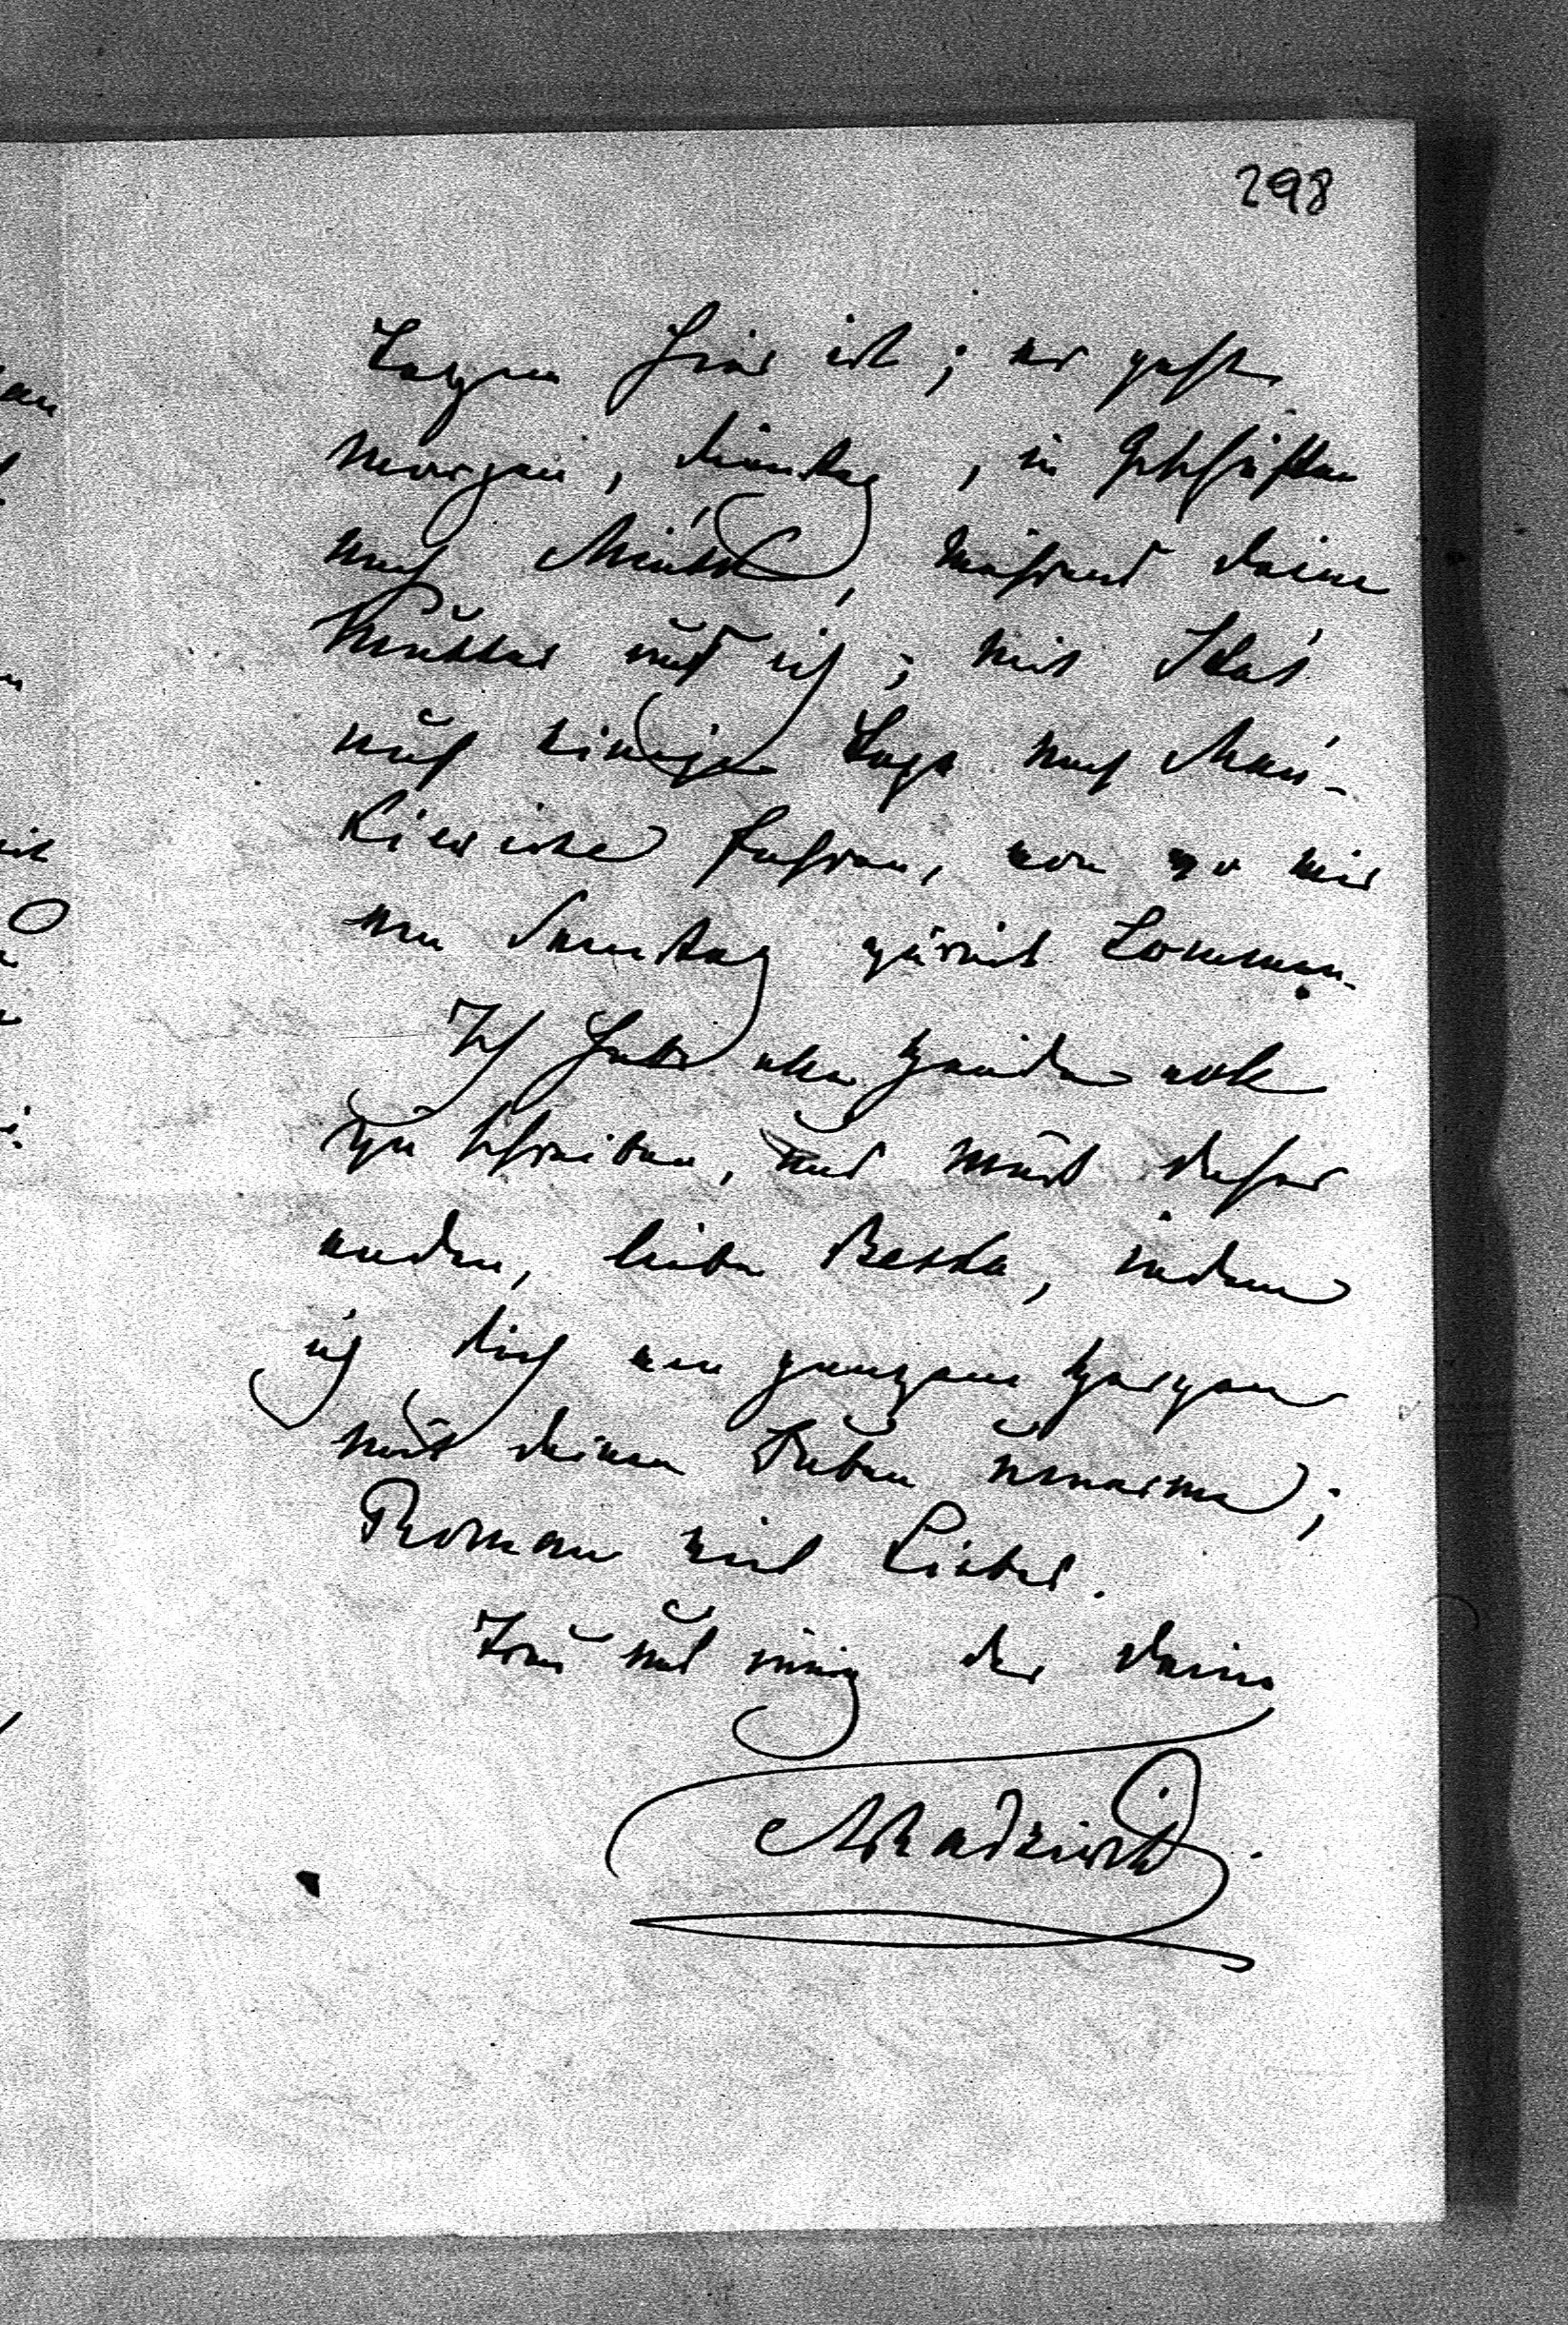 298
Tagen hier ist; er geht
morgen, Dienstag, in Geschäften
nach Minsk, während deine
Mutter und ich, mit Idas
auf einige Tage nach Man-
kiewicze fahren, von wo wir
am Sonntag zurück kommen.
Ich habe alle Hände voll
zu schreiben, und muß daher
enden, liebe Betka, indem
ich dich am ganzem Herzen
mit deinen Buben umarme;
Roman viel Liebes.
Treu und innig der deine